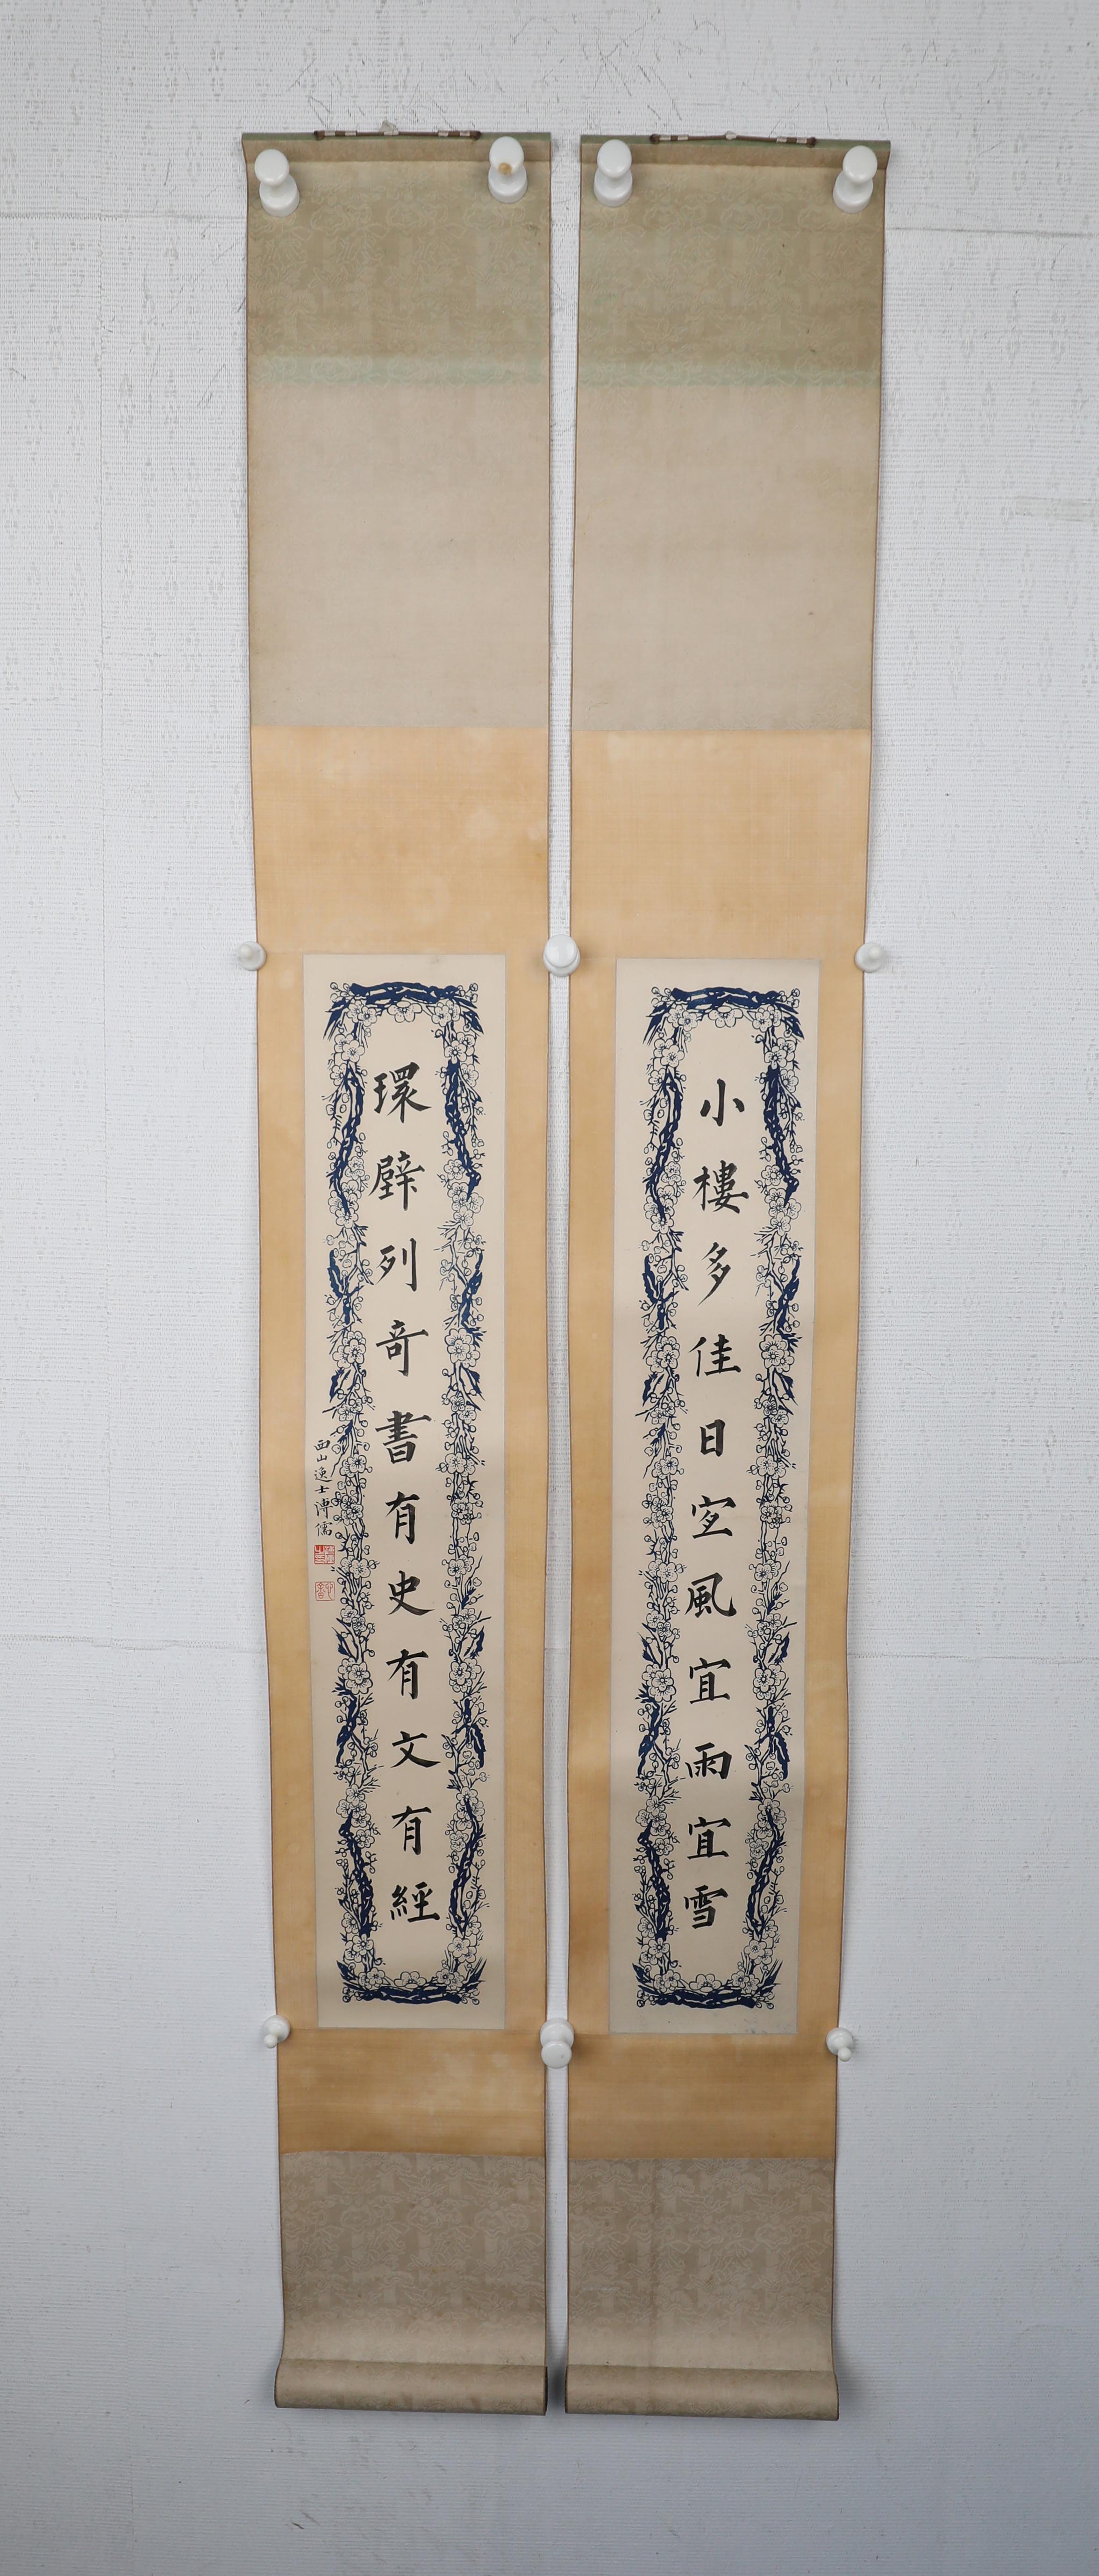 小樓多佳日宜風宜雨宜雪
環壁列奇書有史有文有經
西山逸士溥儒